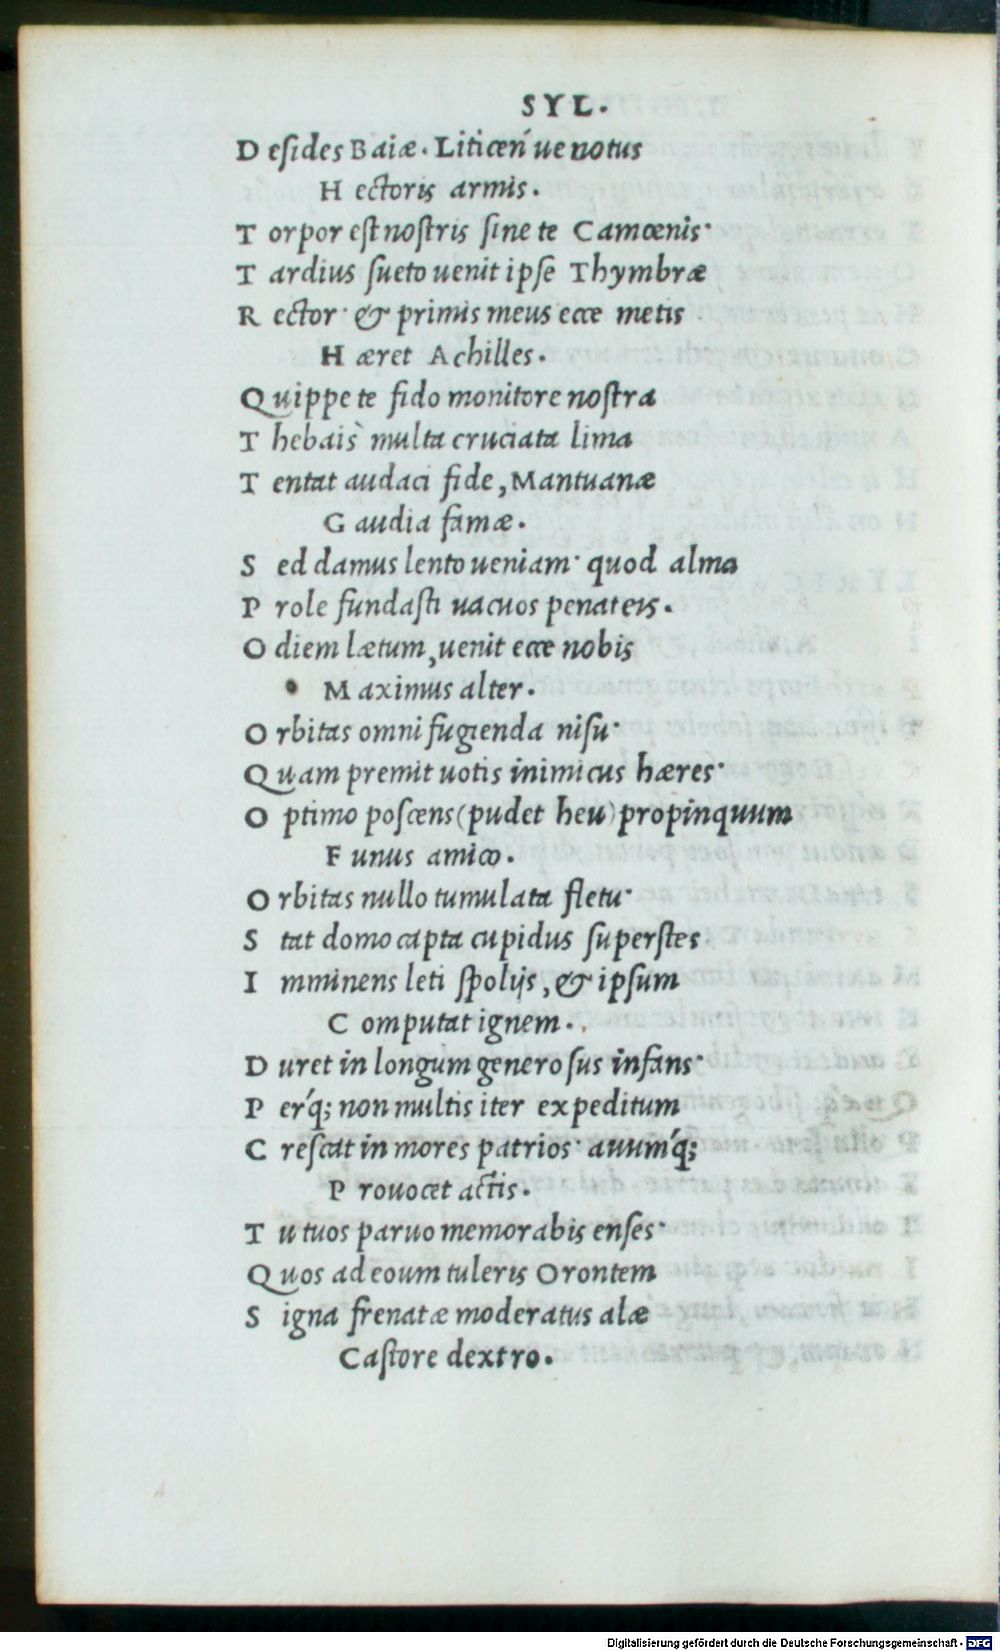 SYL.
D esides Baiæ. Liticen´ue notus
H ectoris armis.
T orpor est nostris sine te Camœnis·
T ardius sueto uenit ipse Thymbræ
R ector· & primis meus ecce metis
H æret Achilles.
Quippe te fido monitore nostra
T hebais` multa cruciata lima
T entat audaci fide, Mantuanæ
G audia famæ.
S ed damus lento ueniam· quod alma
P role fundasti uacuos penateis.
O diem lætum, uenit ecce nobis
M aximus alter.
O rbitas omni fugienda nisu·
Quam premit uotis inimicus hæres·
O ptimo poscens (pudet heu) propinquum
F unus amico.
O rbitas nullo tumulata fletu·
S tat domo capta cupidus superstes
I mminens leti spolijs, & ipsum
C omputat ignem.
D uret in longum generosus infans·
P er´q; non multis iter expeditum
C rescat in mores patrios· auum´q;
P rouocet actis.
T u tuos paruo memorabis enses·
Quos ad eoum tuleris Orontem
S igna frenatæ moderatus alæ
Castore dextro.
Digitalisierung gefördert durch die Deutsche Forschungsgemeinschaft - DFG